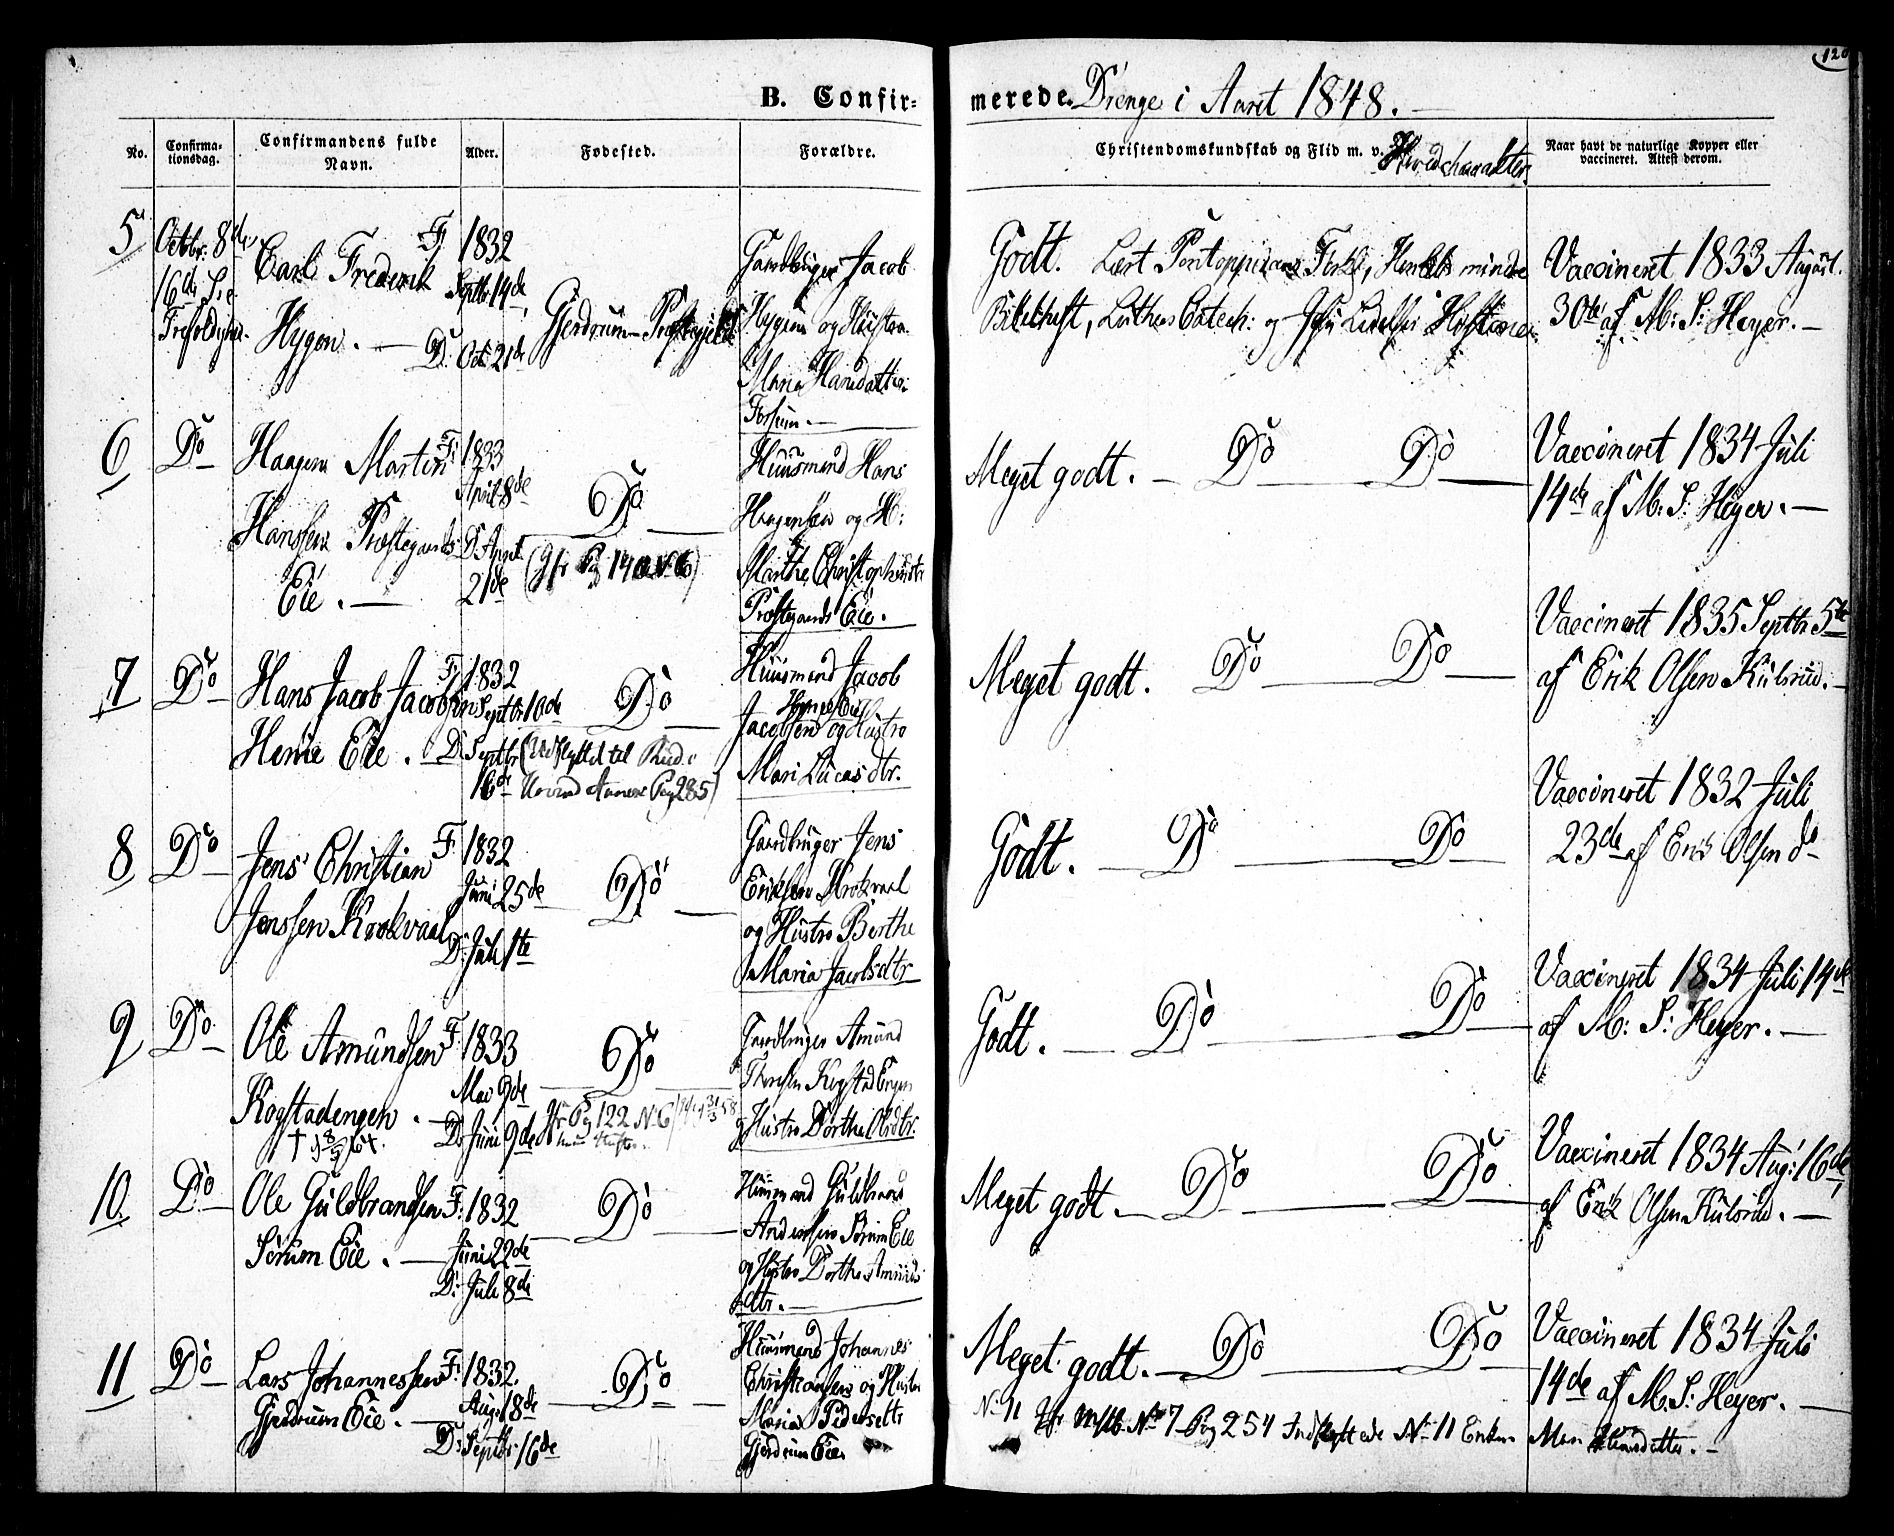 120
B. Confir-
merede. Drenge i Aaret 1848.
No.
Confirma-
tionsdag.
Confirmandens fulde
Navn.
Alder.
Fødested.
Forældre.
Christendomskundskab og Flid m. v. Hovedcharakter.
Naar havt de naturlige Kopper eller
vaccineret. Attest derom.
5
Octbr. 8de
16de S. e.
Trefoldighed.
Carl Frederik
Hygen. D.
F. 1832
Septbr. 14de
Oct. 21de
Gjerdrums Præstegjeld
Gaardbruger Jacob
Hygen og Hustru
Maria Hansdatter
Godt. Lært Pontoppidans Forkl., Herslebs mindre
Bibelhist, Luthers Catech: og Jesu Lidelses Historie
Vaccineret 1833 August
30te af M: S: Heyer.
6
Do
Haagen Martin
Hanssen Præstegaards
Eie.
F. 1833
April 8de
D. April
21de
Do
(Jfr Pg 140 No 6)
Huusmand Hans
Haagensen og H:
Marthe Christophersdtr
Præstegaards Eie.
Meget godt. Do Do
Vaccineret 1834 Juli
14de af M: S: Heyer.
7
Do
Hans Jacob Jacobsen
Hønie Eie. D.
F. 1832
Septbr 10de
Septbr
16de
Do
(Udflyttet til
Pag 285)
Huusmand Jacob
Jacobsen og Hustro
Mari Lucasdtr.
Meget godt. Do Do
Vaccineret 1835 Septbr 5te
af Erik Olsen Kulsrud.
8
Do
Jens Christian
Jenssen Krokvaal
F. 1832
Juni 25de
D. Juli 1te
Do
Gaardbruger Jens
Eriksen Krokvaal
og Hustro Berthe
Maria Jacobsdtr
Godt. Do Do
Vaccineret 1832 Juli
23de af Erik Olsen do
9
Do
Ole Amundsen
Kogstadengen.
F. 1833
Mai 9de
D. Juni 9de
Do
Jfr Pg 122 No 6
Gaardbruger Amund
Kogstadengen
og Hustro Dorthe Olsdtr.
Godt. Do Do
Vaccineret 1834 Juli 14de
af M: S: Heyer.
10
Do
Ole Guldbrandsen
Sørum Eie.
F. 1832
Juni 22de
D. Juli 8de
Do
Huusmand Guldbrand
Andersen Sørum Eie
og Hustro Dorthe Amunds
dtr.
Meget godt. Do Do
Vaccineret 1834 Aug: 16de
af Erik Olsen Kulsrud.
11
Do
Lars Johannessen
Gjerdrum Eie.
F. 1832.
Aug. 18de
D. Septbr. 16de
Do
Huusmand Johannes
Christiansen og Hustro
Maria Pedersdtr
Gjerdrum Eie
Meget godt. Do Do
Vaccineret 1834 Juli
14de af M. S: Heyer.
No 11 No 7 Pag 254 Indflyttede No 11 Enken Mari